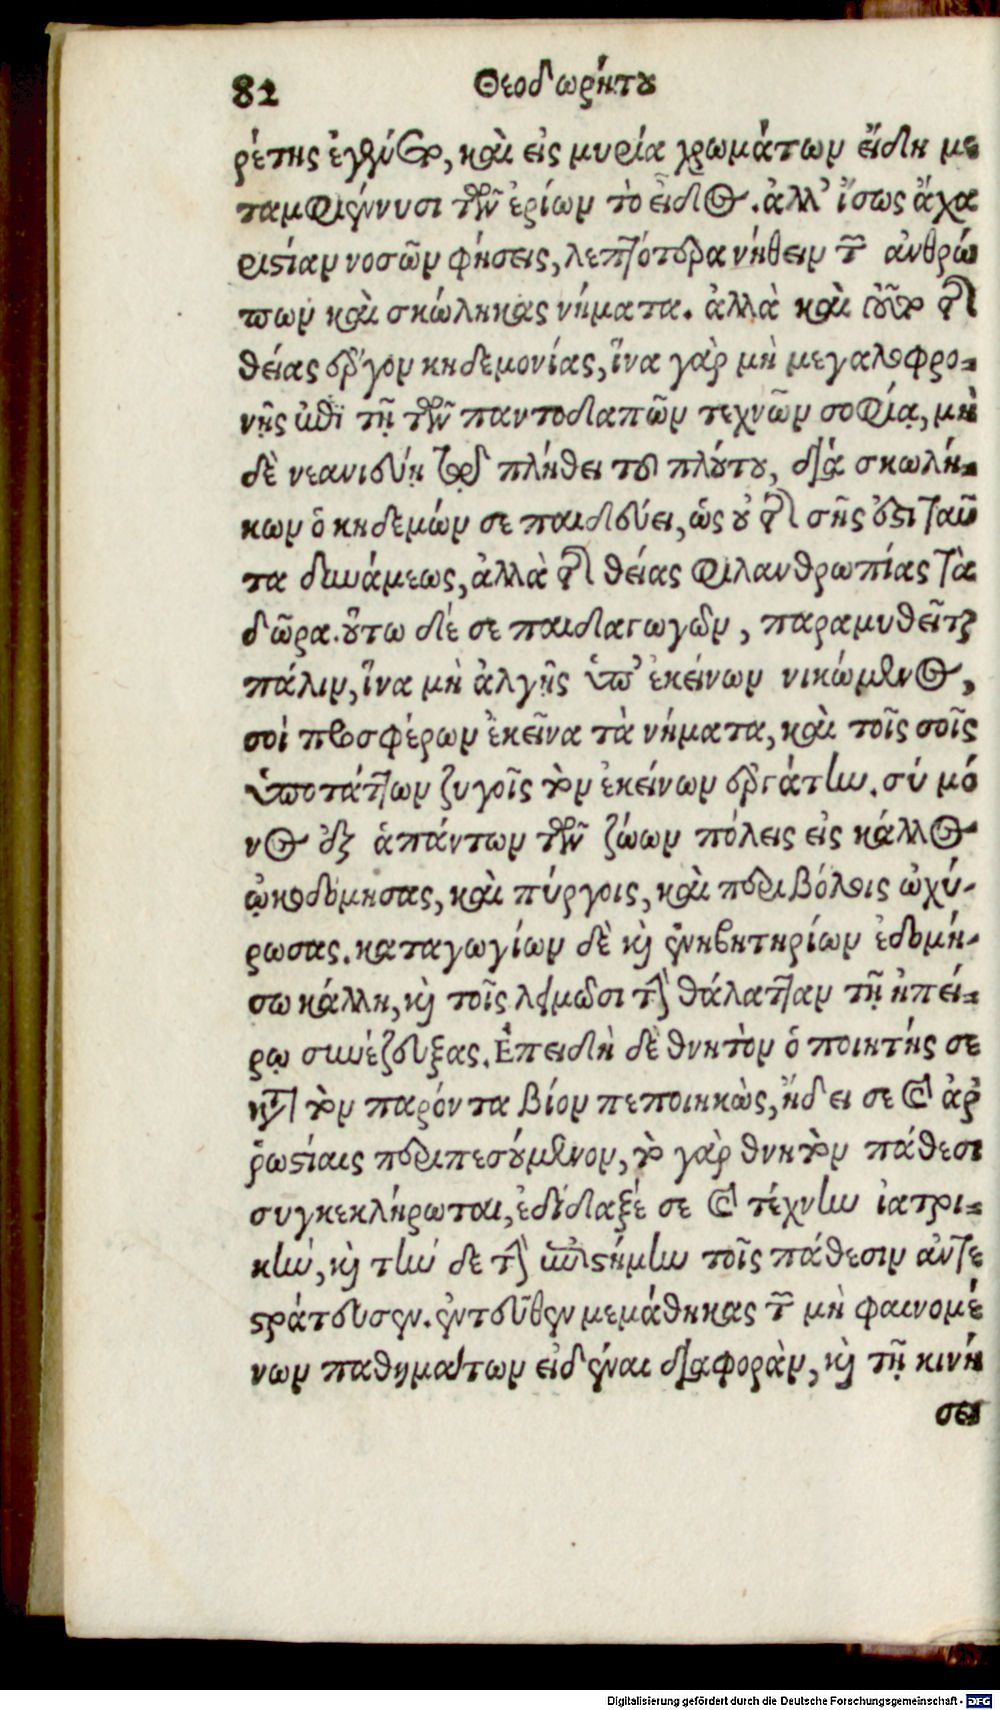 82 Θεοδωρήτου
ρέτης ἐγχεῖται, καὶ εἰς μυρία χρωμάτων εἴδη με
ταμφιέννυσι τῶν ἐρίων τὸ εἶδος. ἀλλ' ἴσως ἄχα
ριστίαν νοσῶν φήσεις, λεπτότερα νήθειν τῶν ἀνθρώ
πων καὶ σκώληκας νήματα. ἀλλὰ καὶ τοῦτο τῆς
θείας ἔργον κηδεμονίας, ἵνα γὰρ μὴ μεγαλοφρο-
νῇς ἐπὶ τῇ τῶν παντοδαπῶν τεχνῶν σοφίᾳ, μὴ
δὲ νεανιεύῃ τῷ πλήθει τοῦ πλούτου, διὰ σκωλή-
κων ὁ κηδεμών σε παιδεύει, ὡς οὐ τῆς σῆς ἐστι ταῦ
τα δυνάμεως, ἀλλὰ τῆς θείας φιλανθρωπίας τὰ
δῶρα. οὕτω δέ σε παιδαγωγῶν, παραμυθεῖται
πάλιν, ἵνα μὴ ἀλγῇς ὑπ' ἐκείνων νικώμενος,
σοὶ προσφέρων ἐκεῖνα τὰ νήματα, καὶ τοῖς σοῖς
ὑποτάττων ζυγοῖς τὸν ἐκείνων ἐργάτην. σύ μό
νος ἐξ ἁπάντων τῶν ζώων πόλεις εἰς κάλλος
ᾠκοδόμησας, καὶ πύργοις, καὶ περιβόλοις ὠχύ-
ρωσας. καταγωγίων δὲ καὶ ἐνηβητηρίων ἐδομή-
σω κάλλη, καὶ τοῖς λιμῶσι τὴν θάλατταν τῇ ἠπεί-
ρῳ συνέζευξας. Ἐπειδὴ δὲ θνητὸν ὁ ποιητής σε
κατὰ τὸν παρόντα βίον πεποιηκὼς, ᾔδει σε καὶ ἀρ
ῥωστίαις περιπεσούμενον, τὸ γὰρ θνητὸν πάθεσι
συγκεκλήρωται, ἐδίδαξέ σε καὶ τέχνην ἰατρι-
κὴν, καὶ τὴν δε τὴν ἐπιστήμην τοῖς πάθεσιν ἀντε
στράτευσεν. ἐντεῦθεν μεμάθηκας τῶν μὴ φαινομέ
νων παθημάτων εἰδέναι διαφορὰν, καὶ τῇ κινή
σει
Digitalisierung gefördert durch die Deutsche Forschungsgemeinschaft - DFG